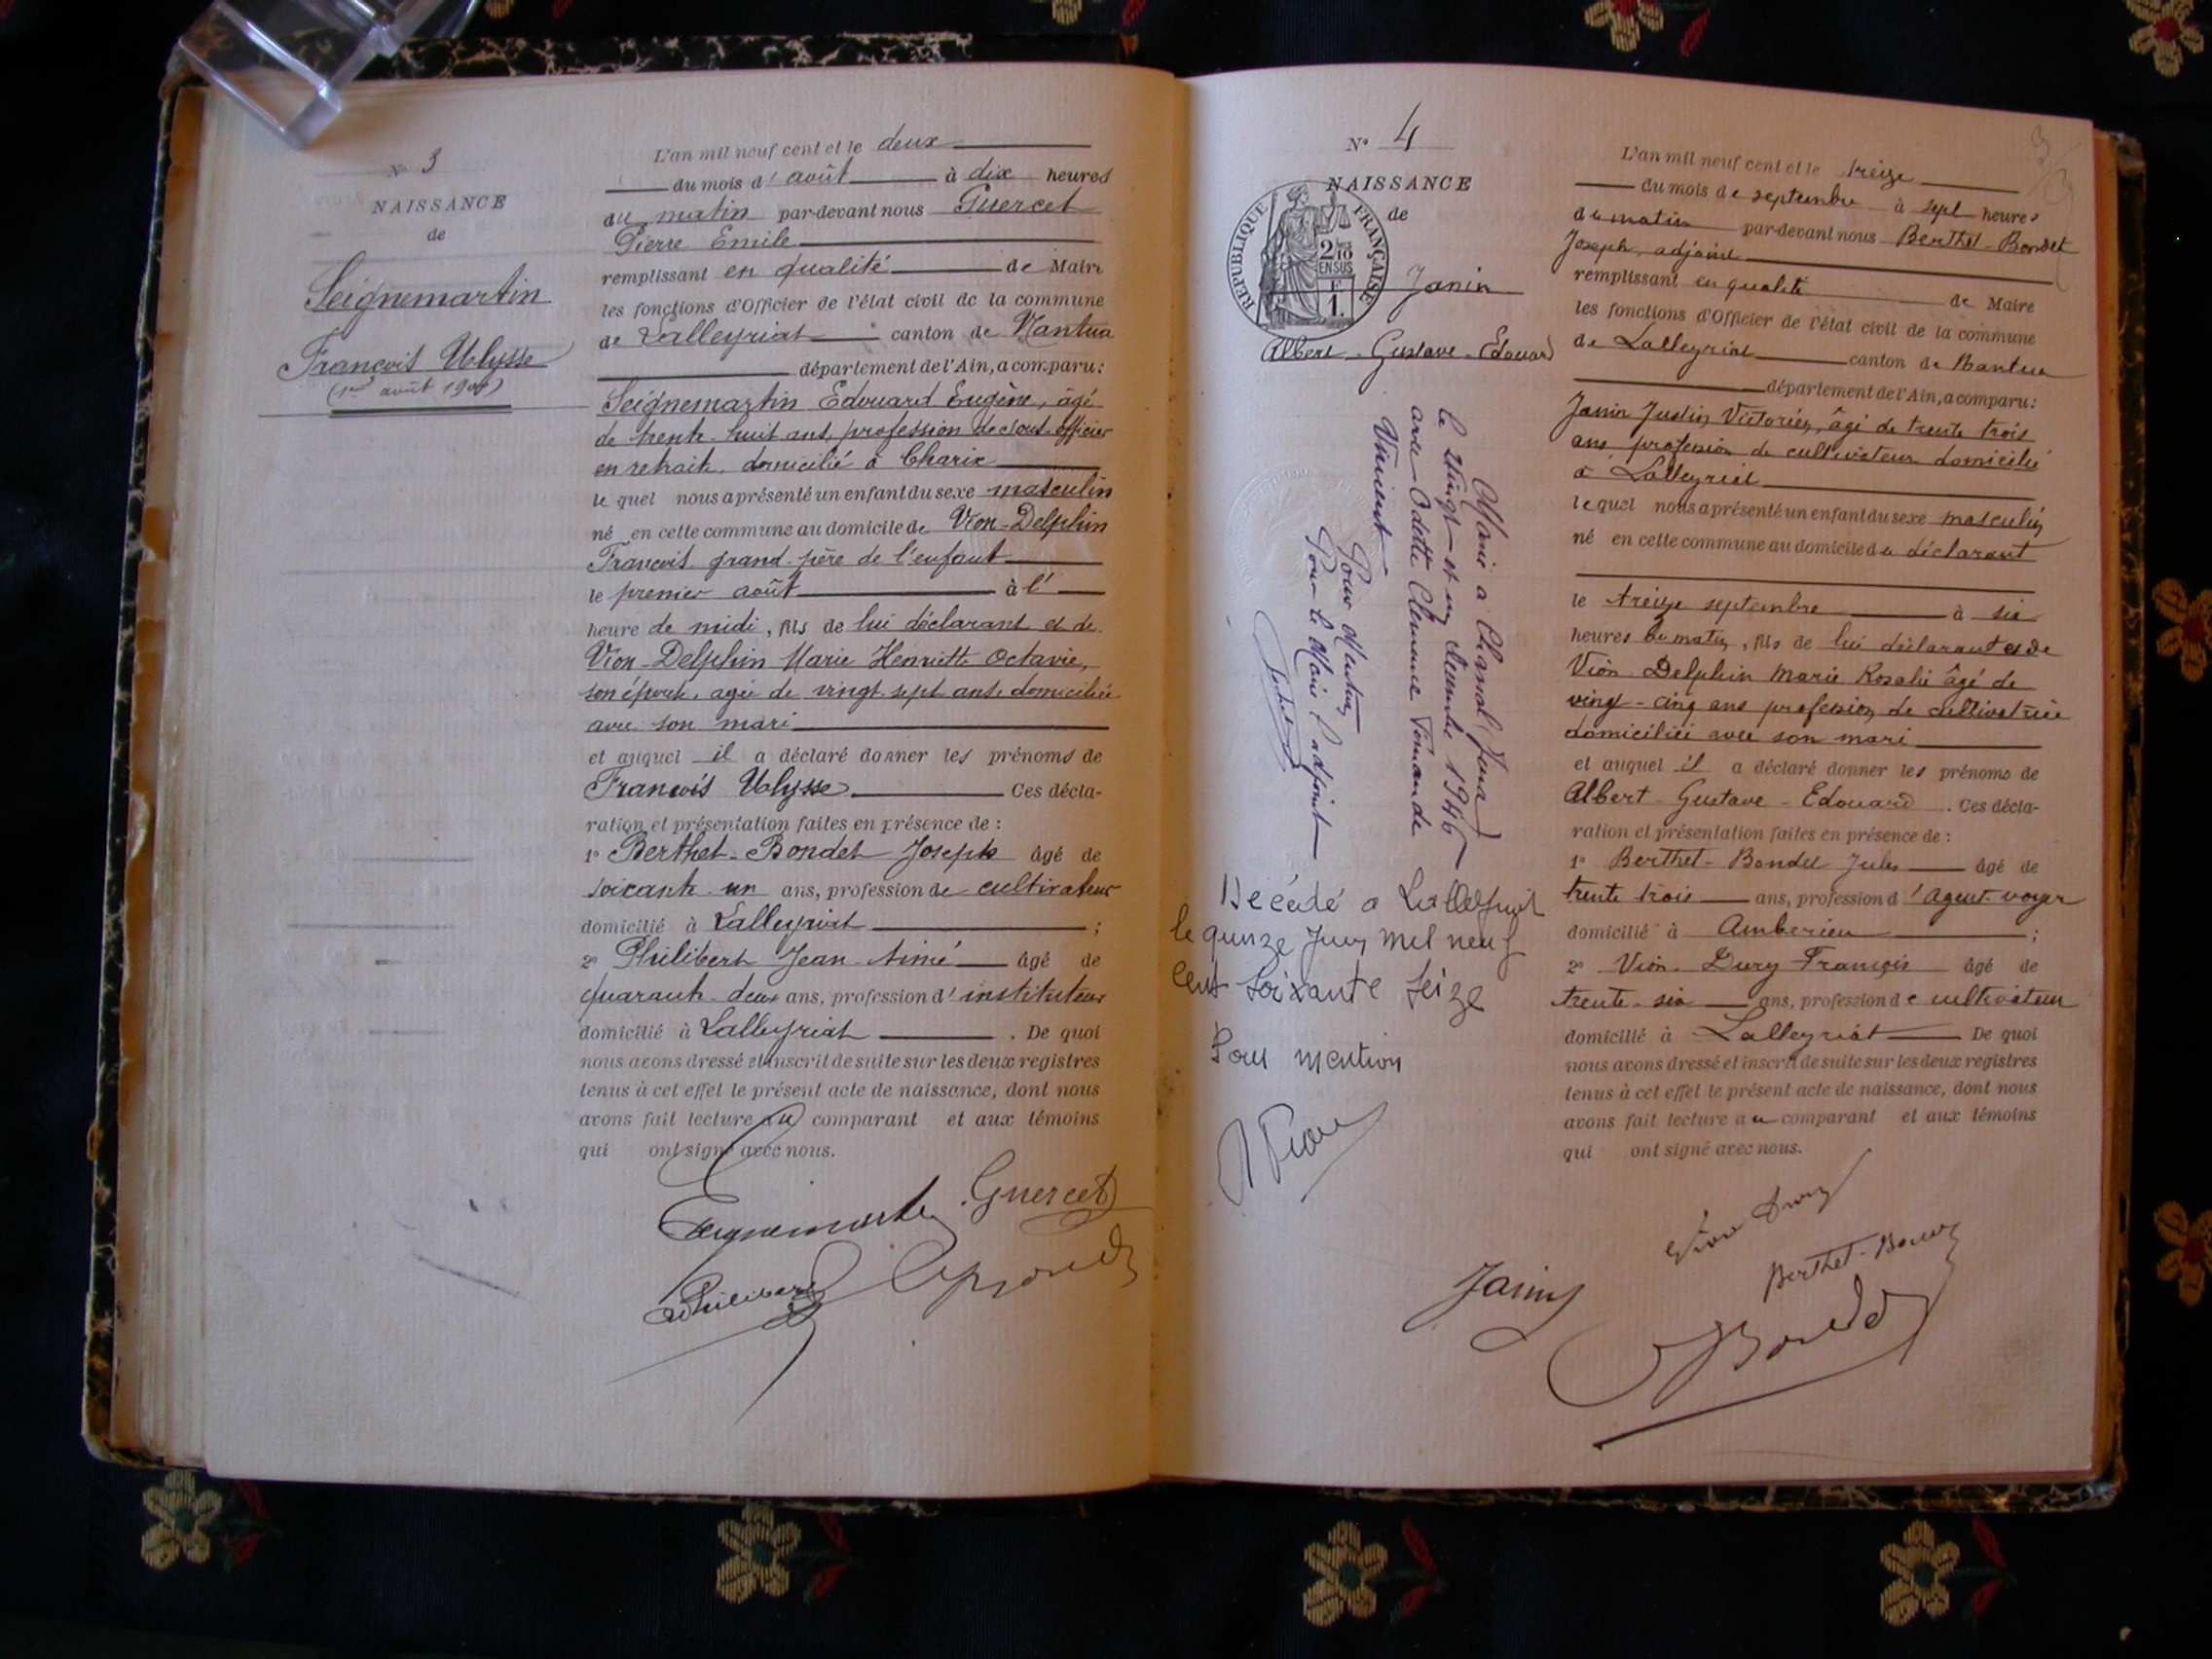 N° 3
NAISSANCE
de
Seignemartin
François Ulysse
(1er août 1900)
L'an mil neuf cent et le deux
du mois d'août à dix heures
du matin par-devant nous Guercet
Pierre Emile
remplissant en qualité de Maire
les fonctions d'Officier de l'état civil de la commune
de Lalleyriat canton de Nantua
département de l'Ain, a comparu:
Seignemartin Edouard Eugène, âgé
de trente-huit ans, profession de sous-officier
en retraite, domicilié à Charix
le quel nous a présenté un enfant du sexe masculin
né en cette commune au domicile de Vion-Delphin
François grand-père de l'enfant
le premier août à l'
heure de midi, fils de lui déclarant et de
Vion-Delphin Marie Henriette Octavie,
son épouse, agée de vingt-sept ans domiciliée
avec son mari
et auquel il a déclaré donner les prénoms de
François Ulysse Ces décla-
ration et présentation faites en présence de :
1° Berthet-Bondet Joseph âgé de
soixante-un ans, profession de cultivateur
domicilié à Lalleyriat ;
2° Philibert Jean-Aimé âgé de
quarante-deux ans, profession d'instituteur
domicilié à Lalleyriat . De quoi
nous avons dressé et inscrit de suite sur les deux registres
tenus à cet effet le présent acte de naissance, dont nous
avons fait lecture au comparant et aux témoins
qui ont signé avec nous.
Seignemartin Guercet
Philibert
N° 4
NAISSANCE
de
REPUBLIQUE FRANÇAISE
2/10
EN SUS
1.
Janin
Albert-Gustave-Edouard
Marié à Charval (Jura)
le vingt-et-un décembre 1946
avec Odette Clémence Fernande
Vincent
Pour Mention
Pour le Maire l'adjoint
Décédé a Lalleyriat
le quinze Juin mil neuf
cent soixante seize
Pour mention
L'an mil neuf cent et le treize
du mois de septembre à sept heures
du matin par-devant nous Berthet-Bondet
Joseph, adjoint
remplissant en qualité de Maire
les fonctions d'Officier de l'état civil de la commune
de Lalleyriat canton de Nantua
département de l'Ain, a comparu:
Janin Justin Victorien, âgé de trente trois
ans profession de cultivateur domicilié
à Lalleyriat
le quel nous a présenté un enfant du sexe masculin
né en cette commune au domicile du déclarant
le treize septembre à six
heures du matin, fils de lui déclarant et de
Vion-Delphin Marie Rosalie âgé de
vingt-cinq ans profession de cultivatrice
domiciliée avec son mari
et auquel il a déclaré donner les prénoms de
Albert-Gustave-Edouard . Ces décla-
ration et présentation faites en présence de :
1° Berthet-Bondet Jules âgé de
trente trois ans, profession d'agent-voyer
domicilié à Amberieu ;
2° Vion-Dury François âgé de
trente-six ans, profession de cultivateur
domicilié à Lalleyriat De quoi
nous avons dressé et inscrit de suite sur les deux registres
tenus à cet effet le présent acte de naissance, dont nous
avons fait lecture au comparant et aux témoins
qui ont signé avec nous.
Vion Dury
Berthet-Bondet
Janin